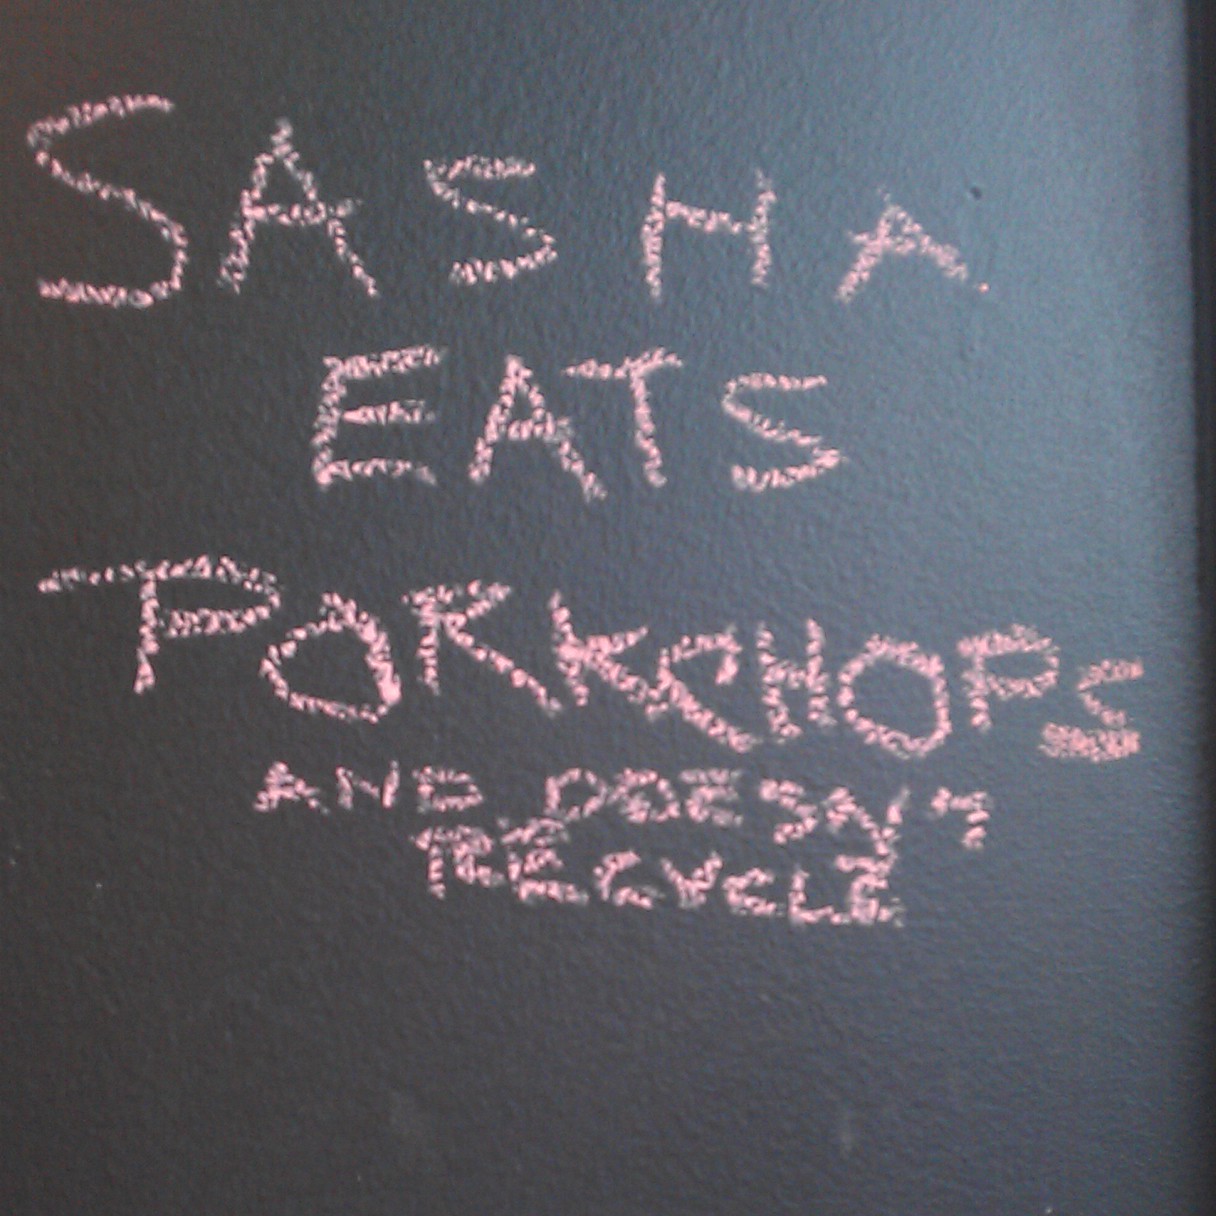 SASHA
EATS
PORKCHOPS
AND DOESN'T
RECYCLE